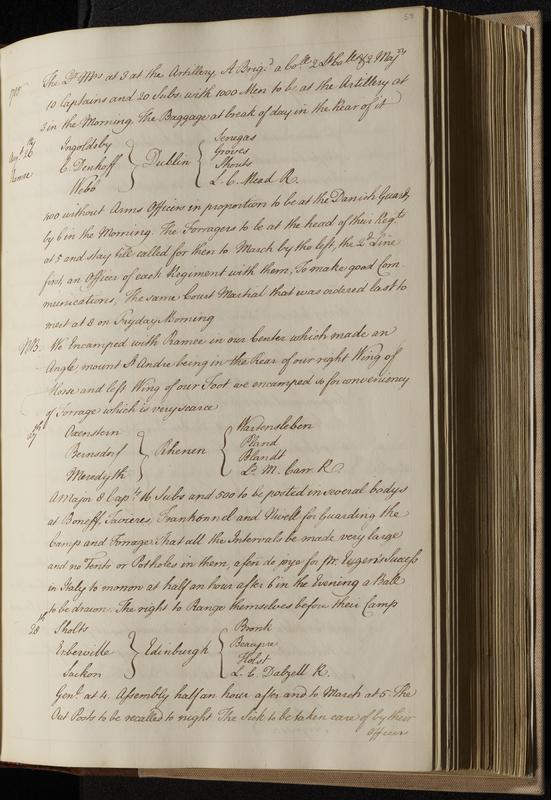 59
1705
The Qr. Mrs at 3 at the Artillery, A Brigr. a Colll. 2 Lt Colls & 2 Majrs
10 Captains and 20 Subs. with 1000 Men to be at the Artillery at
3 in the Morning. The Baggage at break of day in the Rear of it
Augst. 26th
Ramee
Ingoldsby
C. Denhoff
Webb
Dublin
Senegas
Groves
Shouts
L. C. Mead R.
400 without Arms Officers in proportion to be at the Danish Guard,
by 6 in the Morning. The Forragers to be at the head of their Regts
at 5 and stay till called for then to March by the left, the 2d. Line
first, an Officer of each Regiment with them, To make good Com-
munications, The same Court Martial that was ordered last to
meet at 8 on Fryday Morning
NB. We Encamped with Ramee in our Center which made an
Angle mount St Andre being in the Rear of our right Wing of
Horse and left Wing of our Foot we encamped so for conveniency
of Forrage which is very scarce
27th
Oxenstern
Bernsdorf
Meredyth
Rhenen
Wartensleben
Pland
Blandt
Lt. M. Carr. R.
A Major 8 Capts. 16 Subs and 500 to be posted in several bodys
at Boneff, Tavieres, Frankonnel and for Guarding the
Camp and Forrage That all the Intervals be made very large
and no Tents or Potholes in them, a feu de joye for Pr. Eugen's Success
in Italy to morrow at half an hour after 6 in the Evening a Ball
to be drawn. The right to Range themselves before their Camp
28th
Sholts
Erberville
Sackon
Edinburgh
Bronk
Beaupre
Holst
L. C. Dalzell R.
Genll. at 4. Assembly half an hour after and to March at 5. The
Out Posts to be recalled to night The Sick to be taken care of by their
Officers